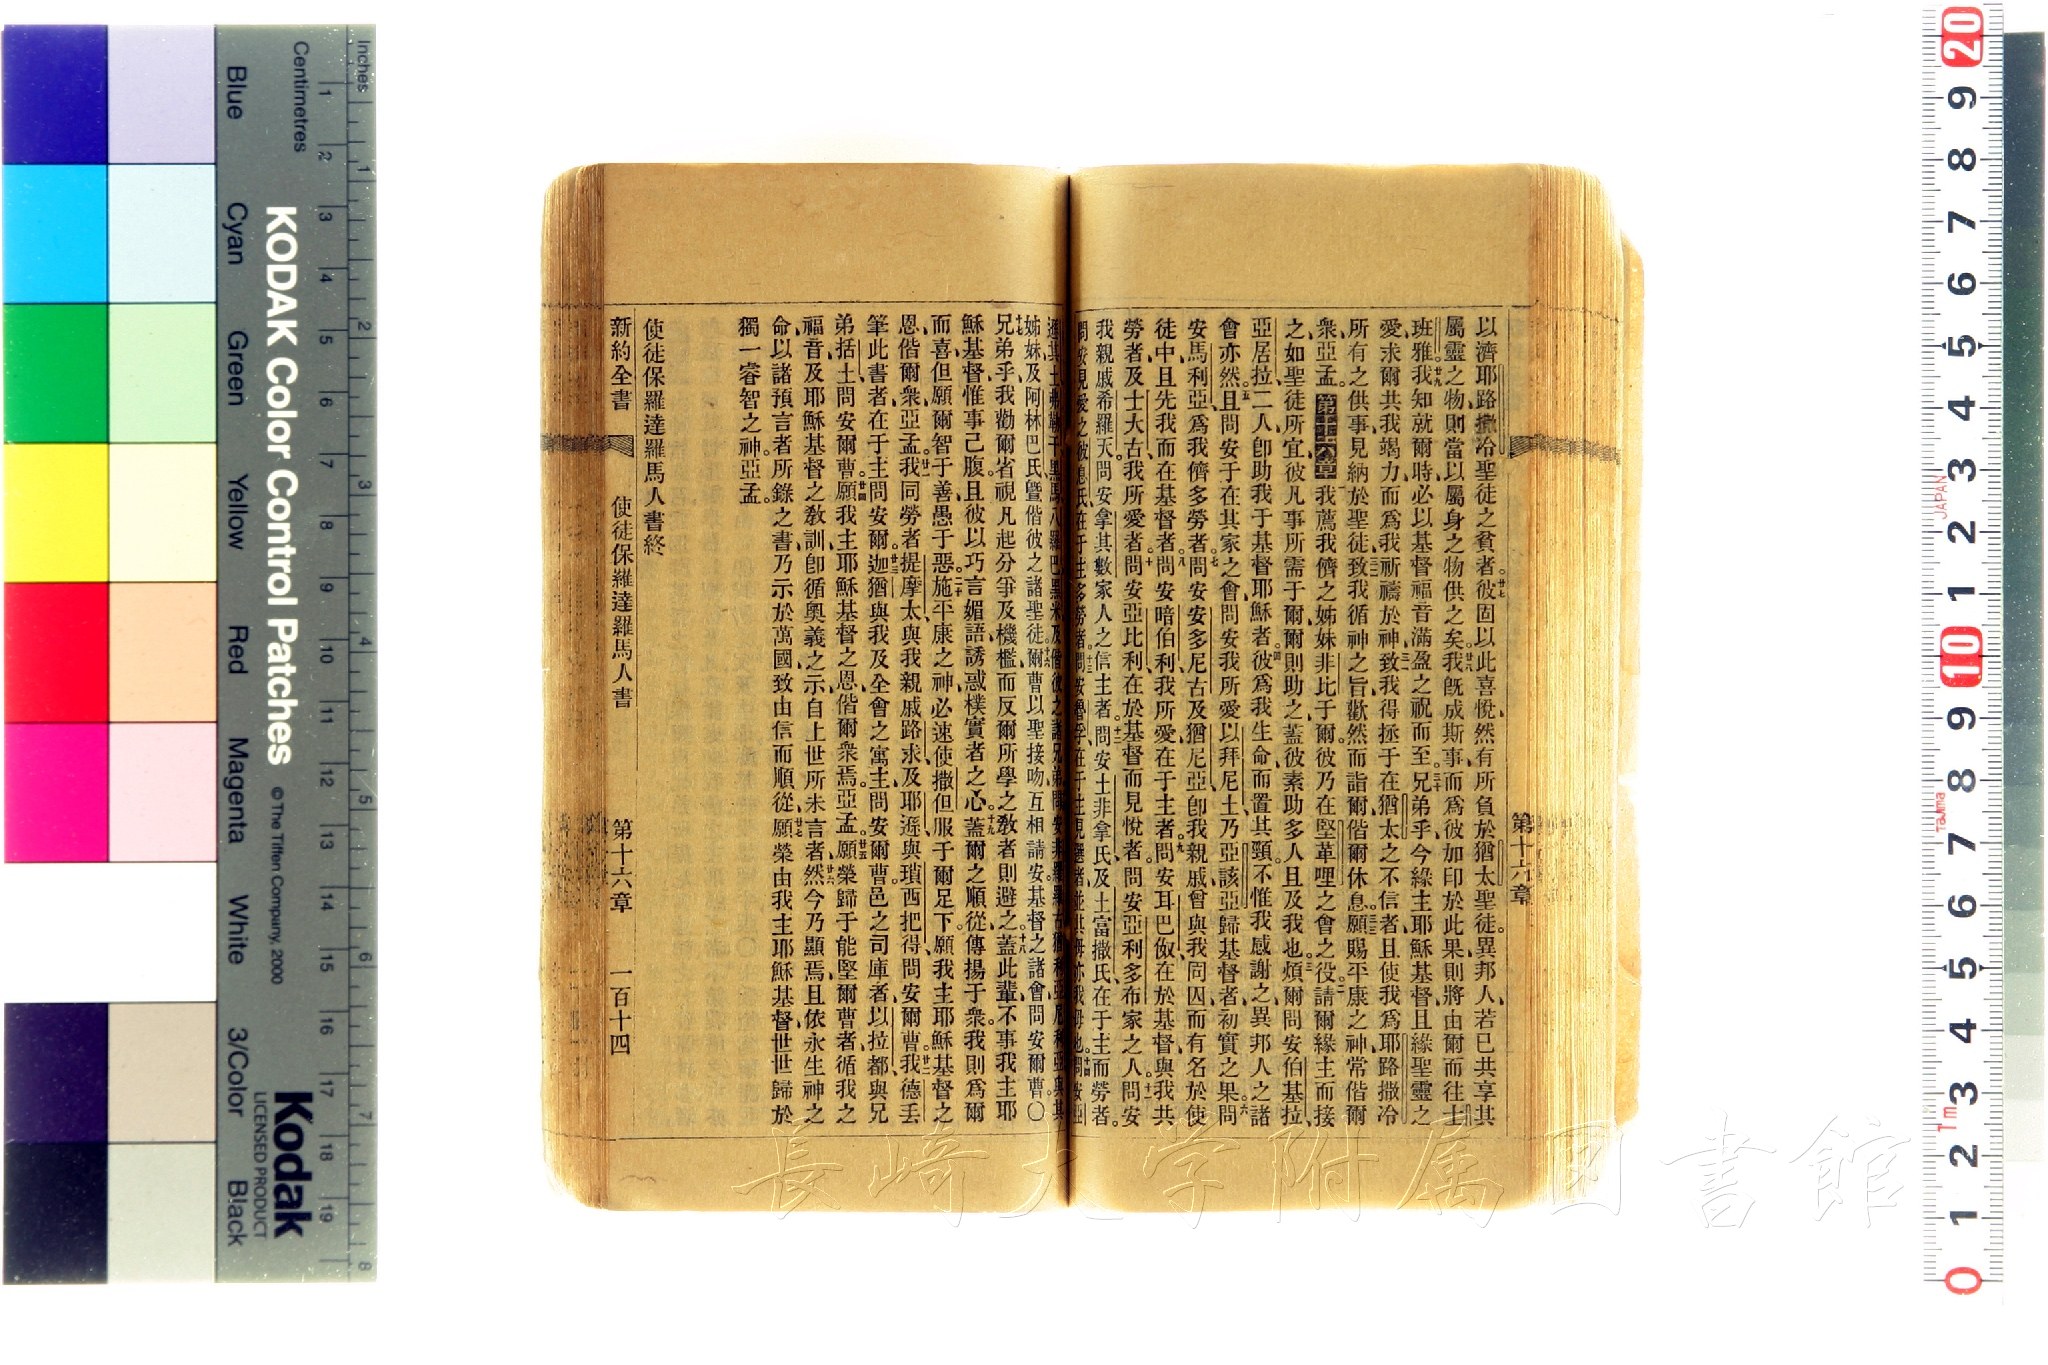 第十六章
以濟耶路撒冷聖徒之貧者。廿七彼固以此喜悅、然有所負於猶太聖徒、異邦人若已共享其
屬靈之物、則當以屬身之物供之矣。廿八我既成斯事、而爲彼加印於此果、則將由爾而往士
班雅。廿九我知就爾時、必以基督福音滿盈之祝而至。三十兄弟乎、今緣主耶穌基督、且緣聖靈之
愛、求爾共我竭力而爲我祈禱於神、致我得拯于在猶太之不信者、且使我爲耶路撒冷
所有之供事、見納於聖徒、致我循神之旨、歡然而詣爾、偕爾休息。願賜平康之神常偕爾
衆、亞孟。第十六章我薦我儕之姊妹非比于爾、彼乃在堅革哩之會之役、請爾緣主而接
之、如聖徒所宜、彼凡事所需于爾、爾則助之、蓋彼素助多人、且及我也。三煩爾問安伯基拉、
亞居拉二人、卽助我于基督耶穌者。四彼爲我生命而置其頸、不惟我感謝之、異邦人之諸
會亦然。五且問安于在其家之會、問安我所愛以拜尼土、乃亞該亞歸基督者、初實之果。六問
安馬利亞、爲我儕多勞者。七問安安多尼古及猶尼亞、卽我親戚、曾與我同囚、而有名於使
徒中、且先我而在基督者。八問安暗伯利、我所愛在于主者。九問安耳巴奴、在於基督與我共
勞者、及士大古我所愛者。十問安亞比利、在於基督而見悅者。問安亞利多布家之人。十一問安
我親戚希羅天、問安拿其數家人之信主者。十二問安土非拿氏、及土富撒氏、在于主而勞者。
遜其土、弗勒干、黑馬、八羅巴、黑米、及偕彼之諸兄弟。問安非羅羅古、猶利亞、尼利亞與其
姊妹、及阿林巴氏、曁偕彼之諸聖徒。十六爾曹以聖接吻互相請安、基督之諸會問安爾曹。〇
十七兄弟乎、我勸爾省視凡起分爭及機檻、而反爾所學之敎者、則避之。十八蓋此輩不事我主耶
穌基督、惟事己腹、且彼以巧言媚語誘惑樸實者之心。十九蓋爾之順從、傳揚于衆、我則爲爾
而喜、但願爾智于善、愚于惡。二十施平康之神、必速使撒但服于爾足下。願我主耶穌基督之
恩偕爾衆、亞孟。廿一我同勞者提摩太、與我親戚路求、及耶遜、與瑣西把得、問安爾曹。廿二我德丟
筆此書者、在于主問安爾。廿三迦猶與我及全會之寓主、問安爾曹、邑之司庫者以拉都、與兄
弟括土問安爾曹。廿四願我主耶穌基督之恩、偕爾衆焉、亞孟。廿五願榮歸于能堅爾曹者、循我之
福音、及耶穌基督之敎訓、卽循奧義之示、自上世所未言者。廿六然今乃顯焉、且依永生神之
命、以諸預言者所錄之書、乃示於萬國、致由信而順從。廿七願榮由我主耶穌基督、世世歸於
獨一睿智之神、亞孟。
使徒保羅達羅馬人書終
新約全書 使徒保羅達羅馬人書 第十六章 一百十四
Inches
Centimetres
Blue Cyan Green Yellow Red Magenta White 3/Color Black
KODAK Color Control Patches © The Tiffen Company, 2000
Kodak
LICENSED PRODUCT
JAPAN
Tajima
Tm
長崎大学附属図書館